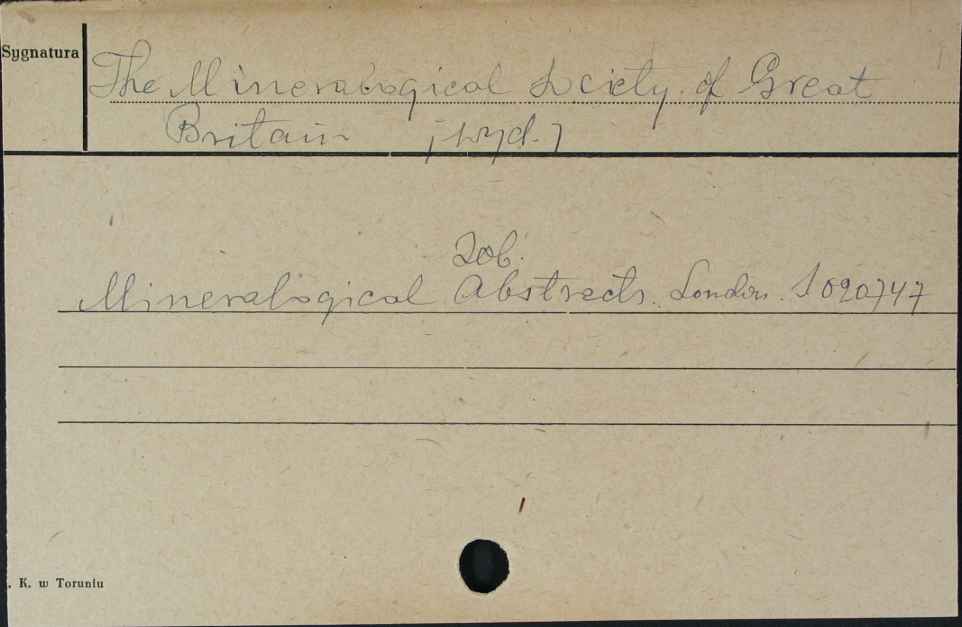 Sygnatura
The Mineralogical Society of Great
Britain [wyd.]
Zob.
Mineralogical Abstracts. London. S 020747
. K. w Toruniu